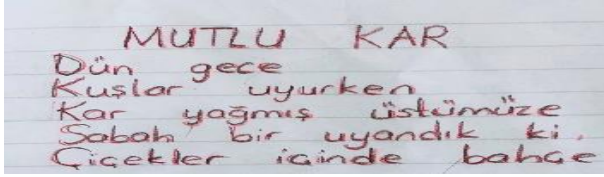 MUTLU KAR
Dün gece
Kuşlar uyurken
Kar yağmış üstümüze
Sabah bir uyandık ki.
Çiçekler içinde bahçe